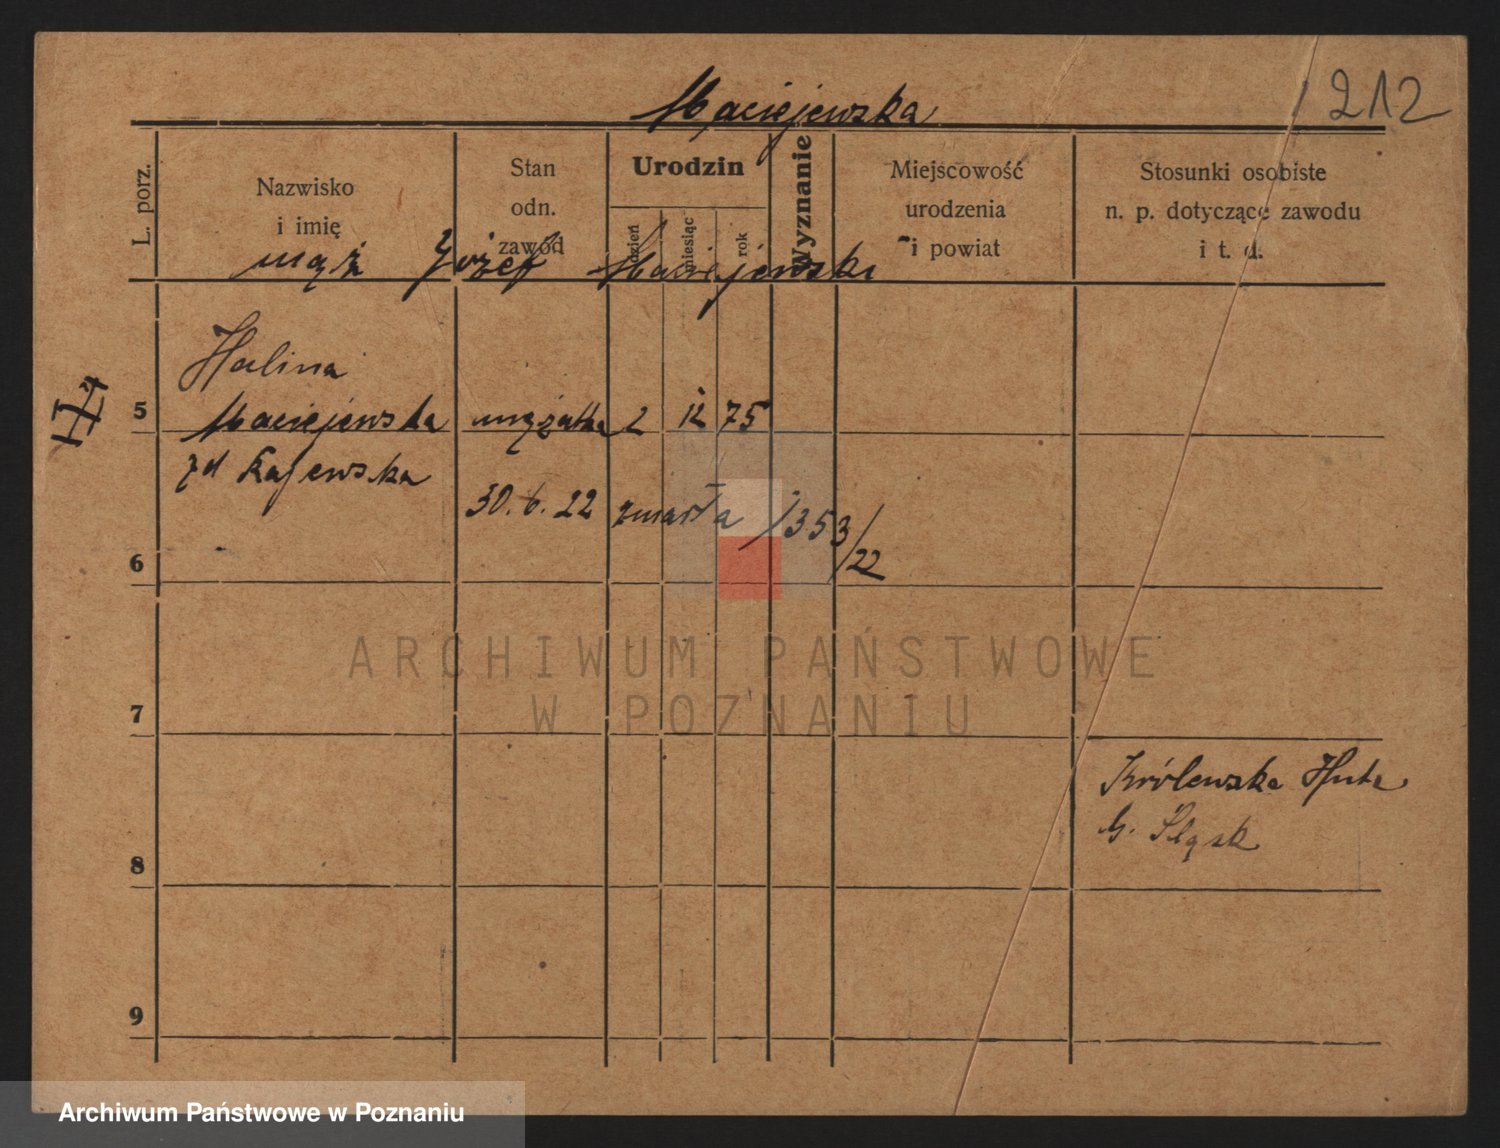 212
Maciejewska
L. porz.
Nazwisko
i imię
Stan
odn.
zawód
Urodzin
dzień
miesiąc
rok
Wyznanie
Miejscowość
urodzenia
i powiat
Stosunki osobiste
n. p. dotyczące zawodu
i t. d.
mąż Józef Maciejewski
Halina
5 Maciejewska mężatka 2 12 75
zd Kajewska
30. 6. 22 zmarła /353/22
6
ARCHIWUM PAŃSTWOWE
W POZNANIU
7
Królewska Huta
G. Śląsk
8
9
Archiwum Państwowe w Poznaniu